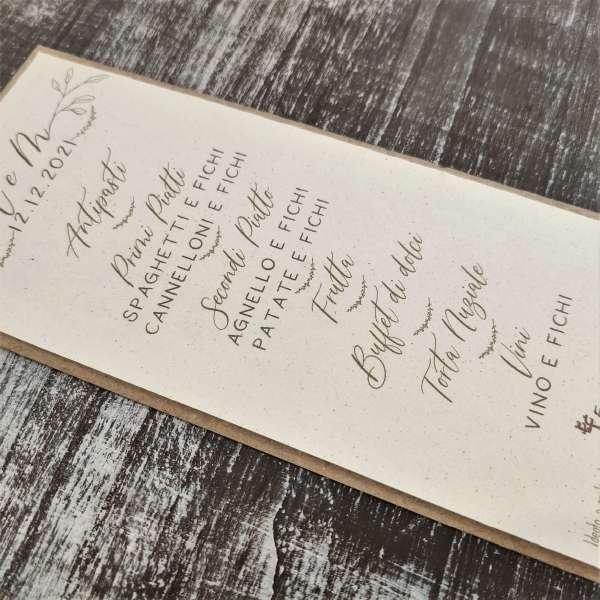 e M
12.12.2021
Antipasti
Primi Piatti
SPAGHETTI E FICHI
CANNELLONI E FICHI
Secondi Piatto
AGNELLO E FICHI
PATATE E FICHI
Frutta
Buffet di dolci
Torta Nuziale
Vini
VINO E FICHI